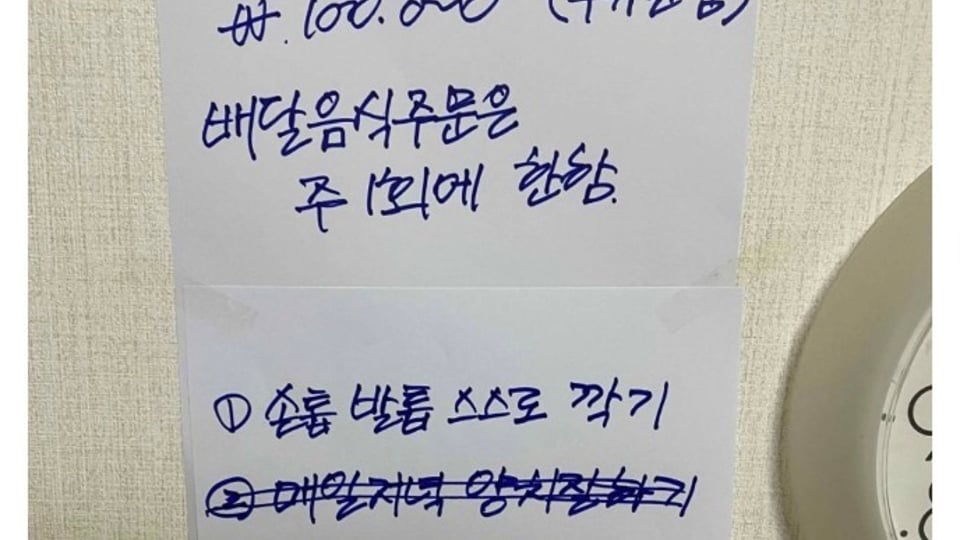 ₩.100.000
배달음식주문은
주 1회에 한함.
① 손톱 발톱 스스로 깍기
② 매일저녁 양치질하기